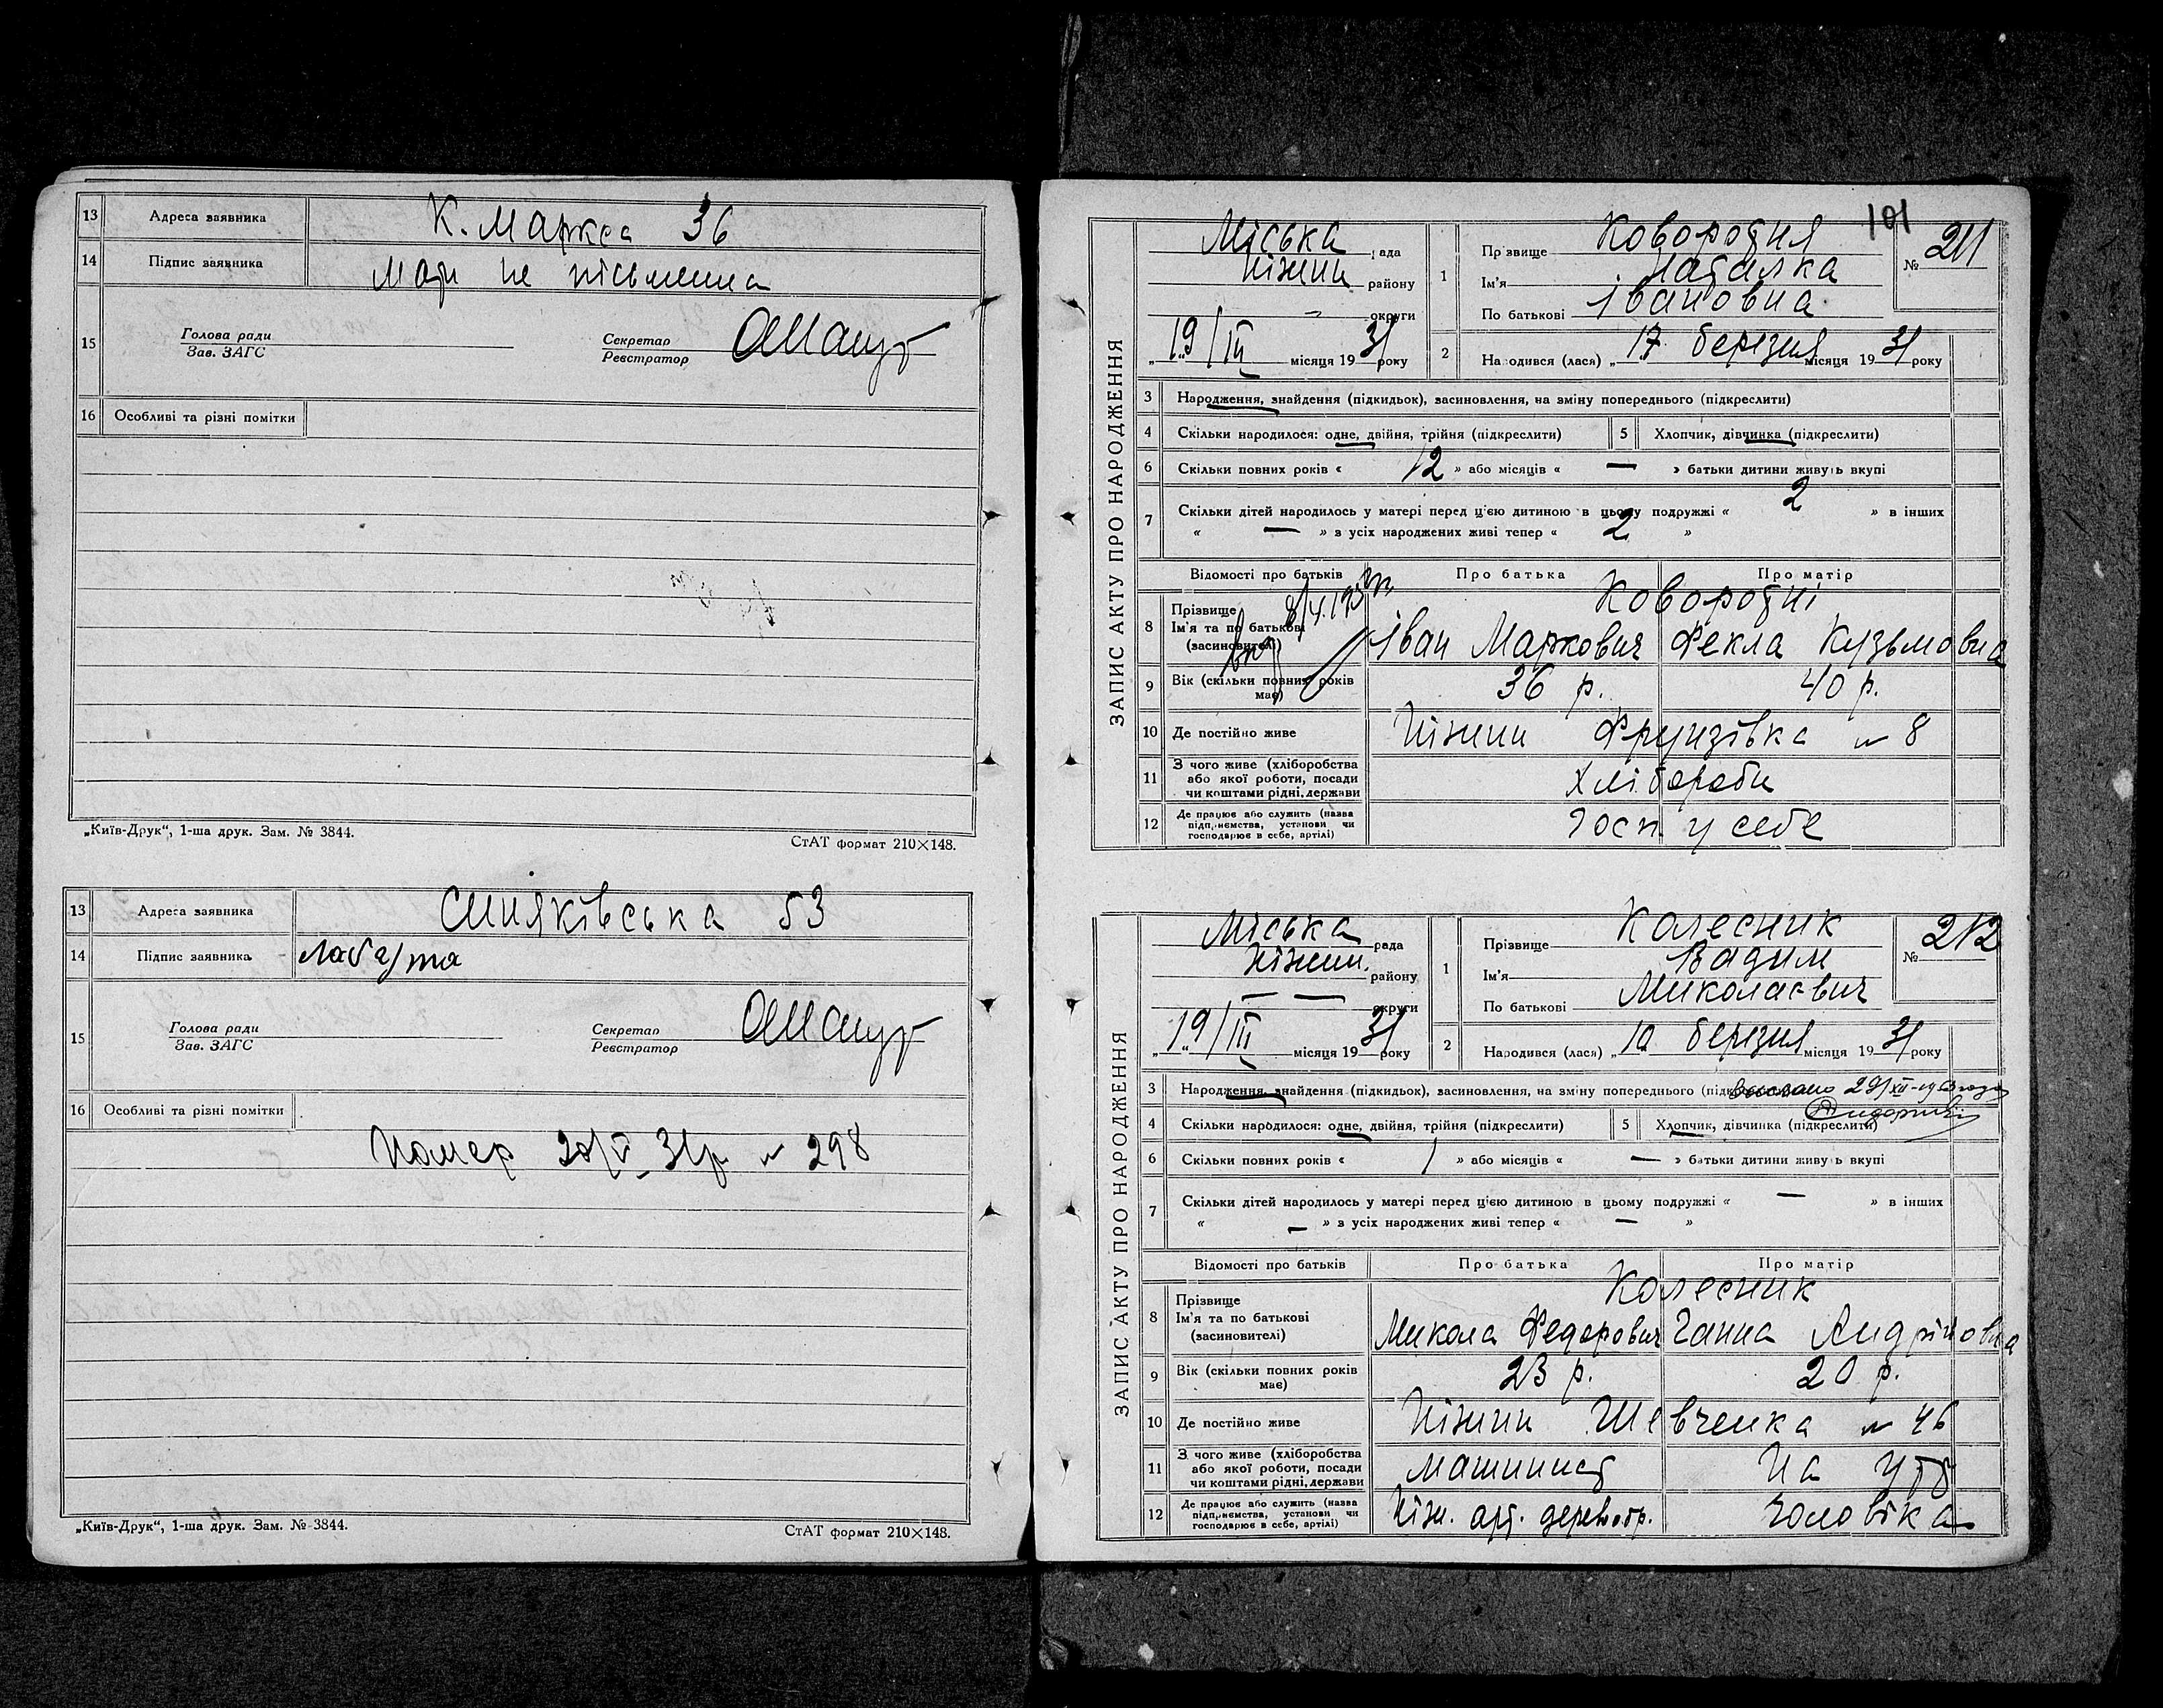 13 Адреса заявника К. Маркса 36
14 Підпис заявника Мари не письменна
15 Голова ради
Зав. ЗАГС
Секретар
Реєстратор
16 Особливі та різні помітки
„Київ-Друк“, 1-ша друк. Зам. № 3844.
СтАТ формат 210×148.
13 Адреса заявника Синяківська 53
14 Підпис заявника
15 Голова ради
Зав. ЗАГС
Секретар
Реєстратор
16 Особливі та різні помітки
Помер 31р. № 298
„Київ-Друк“, 1-ша друк. Зам. № 3844.
СтАТ формат 210×148.
101
ЗАПИС АКТУ ПРО НАРОДЖЕННЯ
Міська рада
Ніжин району
— округи
„19/III місяця 1931 року
1 Прізвище Ковородня
Ім'я Наталка
По батькові Івановна
№ 211
2 Народився (лася) „17 березня місяця 1931 року
3 Народження, знайдення (підкидьок), засиновлення, на зміну попереднього (підкреслити)
4 Скільки народилося: одне, двійня, трійня (підкреслити)
5 Хлопчик, дівчинка (підкреслити)
6 Скільки повних років « 12 » або місяців « — » батьки дитини живуть вкупі
7 Скільки дітей народилось у матері перед цією дитиною в цьому подружжі « 2 » в інших
« — » з усіх народжених живі тепер « 2 »
Відомості про батьків Про батька Про матір
8 Прізвище Ковородні
Ім'я та по батькові Іван Маркович Фекла Кузьмовна
(засиновителі)
9 Вік (скільки повних років має) 36 р. 40 р.
10 Де постійно живе Ніжин Фрунзівка № 8
11 З чого живе (хліборобства
або якої роботи, посади
чи коштами рідні, держави Хлібороби
12 Де працює або служить (назва
підприємства, установи чи
господарює в себе, артілі) Госп. у себе
ЗАПИС АКТУ ПРО НАРОДЖЕННЯ
Міська рада
Ніжин. району
— — округи
„19/III місяця 1931 року
1 Прізвище Колесник
Ім'я Вадим
По батькові Миколаєвич
№ 212
2 Народився (лася) „10 березня місяця 1931 року
3 Народження, знайдення (підкидьок), засиновлення, на зміну попереднього
4 Скільки народилося: одне, двійня, трійня (підкреслити)
5 Хлопчик, дівчинка (підкреслити)
6 Скільки повних років « 1 » або місяців « — » батьки дитини живуть вкупі
7 Скільки дітей народилось у матері перед цією дитиною в цьому подружжі « — » в інших
« — » з усіх народжених живі тепер « — »
Відомості про батьків Про батька Про матір
8 Прізвище Колесник
Ім'я та по батькові Микола Федорович Ганна Андріївовна
(засиновителі)
9 Вік (скільки повних років має) 23 р. 20 р.
10 Де постійно живе Ніжин Шевченка № 46
11 З чого живе (хліборобства
або якої роботи, посади
чи коштами рідні, держави машинист На утр
12 Де працює або служить (назва
підприємства, установи чи
господарює в себе, артілі) Ніжн. арт. деревообр. чоловіка